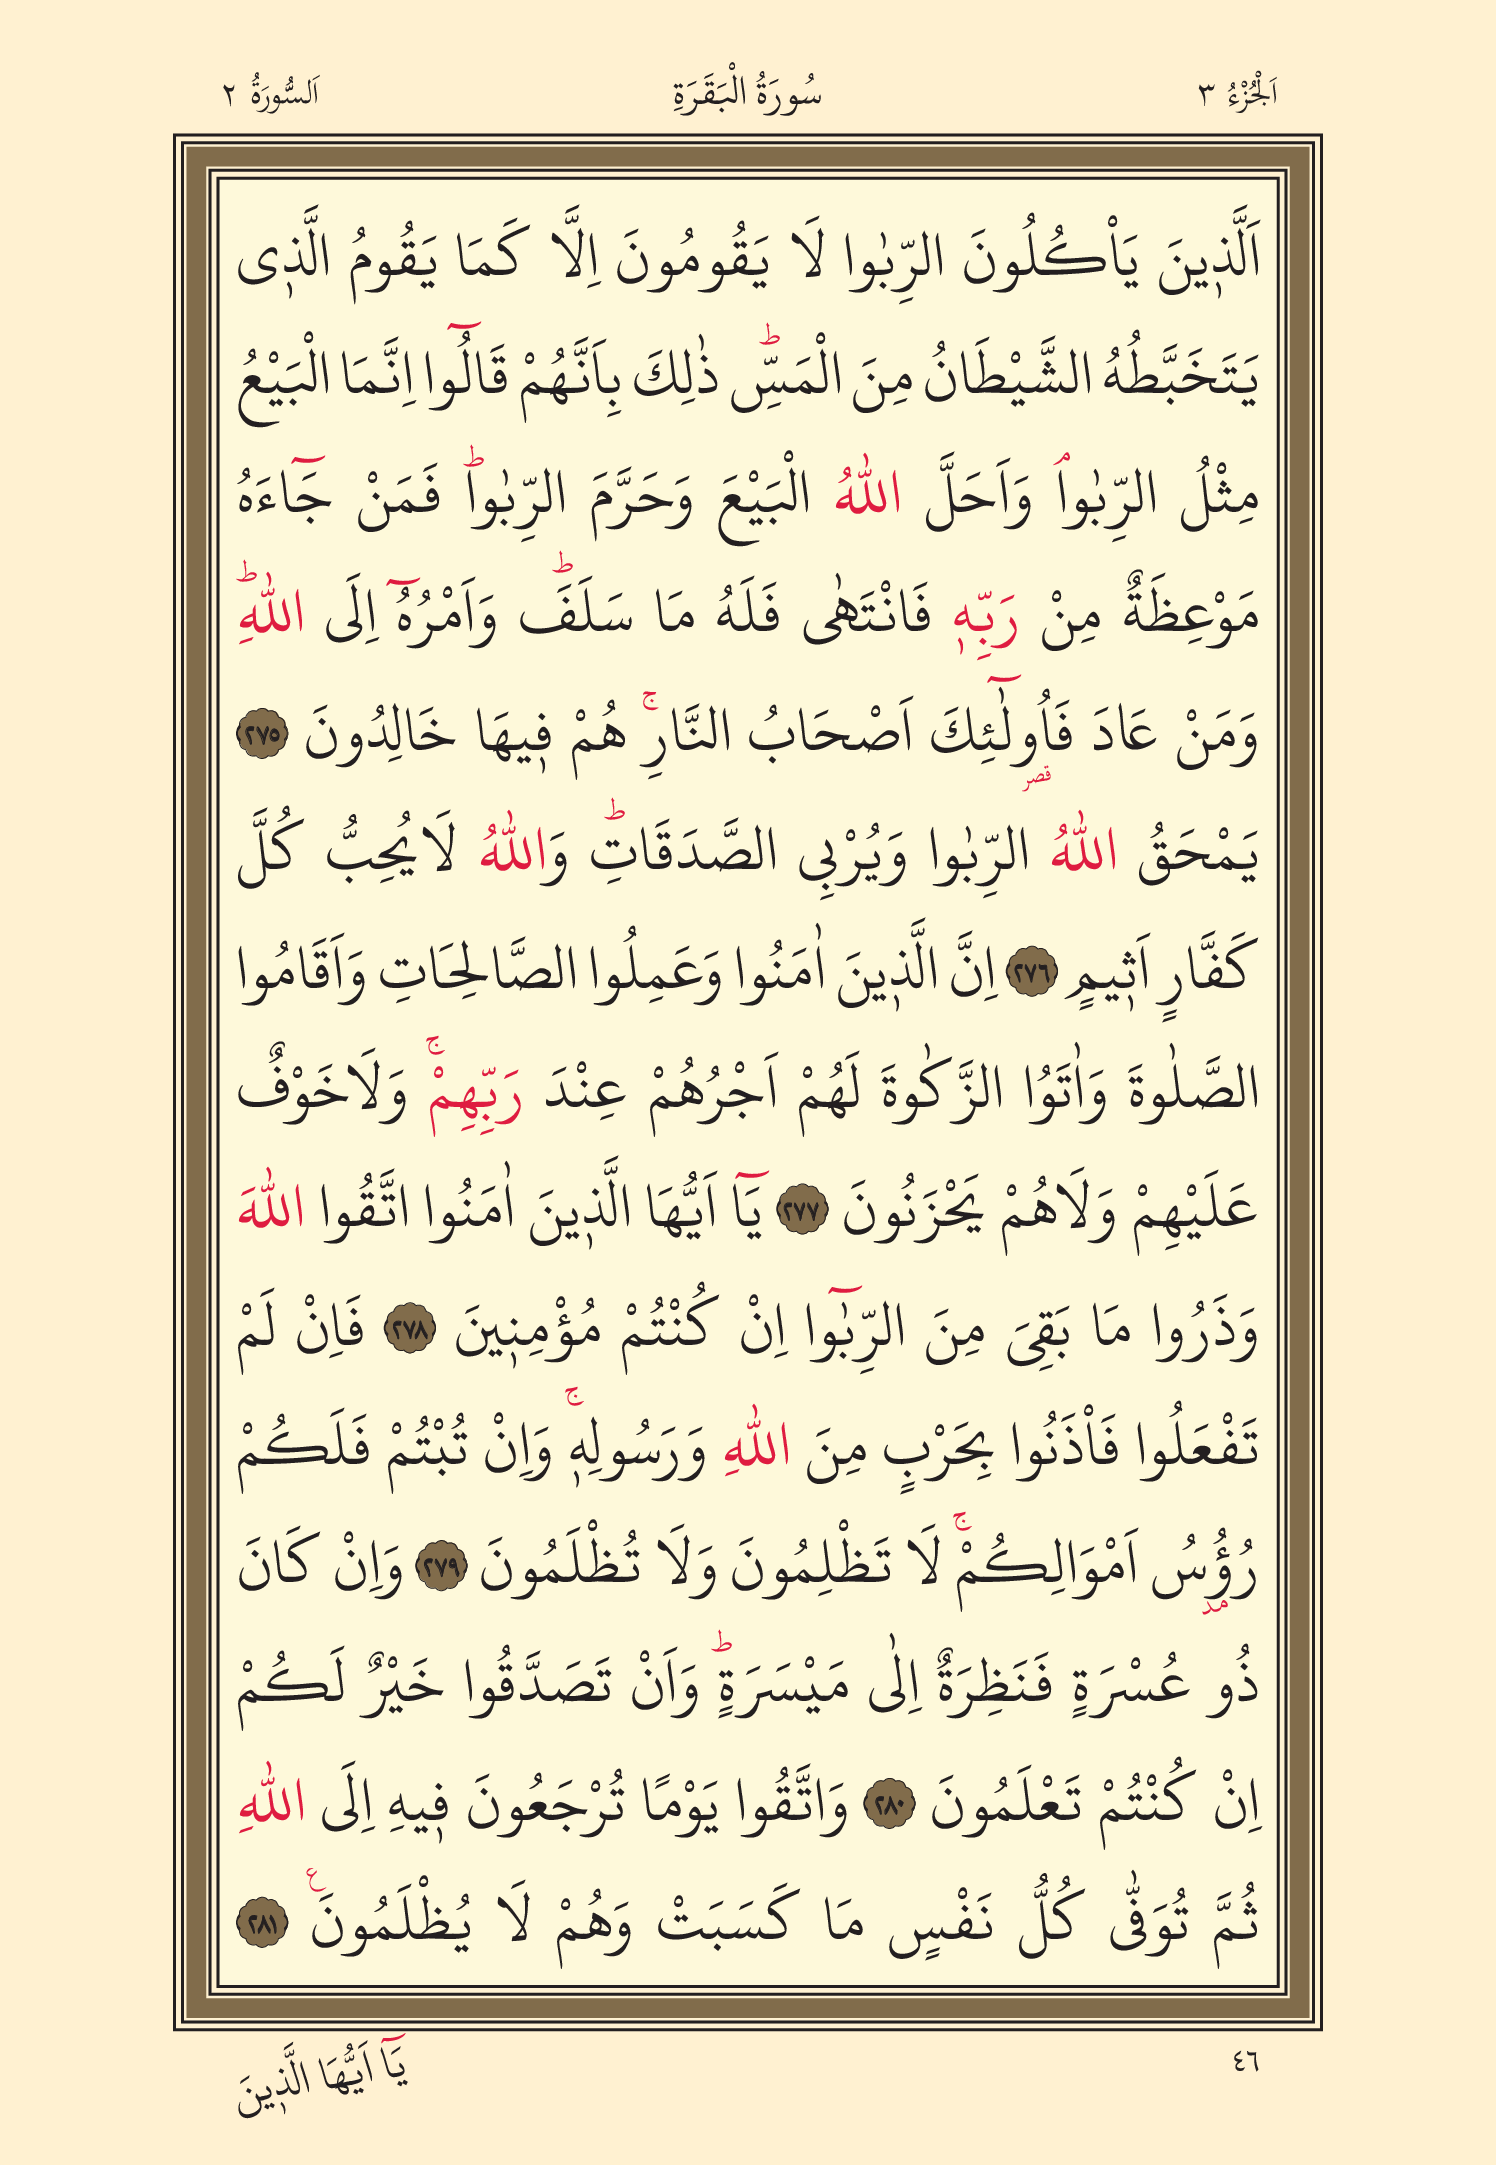 اَلْجُزْءُ ٣
سُورَةُ الْبَقَرَةِ
اَلسُّورَةُ ٢
اَلَّذ۪ينَ يَأْكُلُونَ الرِّبٰوا لَا يَقُومُونَ اِلَّا كَمَا يَقُومُ الَّذ۪ى
يَتَخَبَّطُهُ الشَّيْطَانُ مِنَ الْمَسِّۜ ذٰلِكَ بِاَنَّهُمْ قَالُٓوا اِنَّمَا الْبَيْعُ
مِثْلُ الرِّبٰواۢ وَاَحَلَّ اللّٰهُ الْبَيْعَ وَحَرَّمَ الرِّبٰواۜ فَمَنْ جَٓاءَهُ
مَوْعِظَةٌ مِنْ رَبِّه۪ فَانْتَهٰى فَلَهُ مَا سَلَفَۜ وَاَمْرُهُٓ اِلَى اللّٰهِۜ
وَمَنْ عَادَ فَاُولٰٓئِكَ اَصْحَابُ النَّارِۚ هُمْ ف۪يهَا خَالِدُونَ ٢٧٥
قصر
يَمْحَقُ اللّٰهُ الرِّبٰوا وَيُرْبِى الصَّدَقَاتِۜ وَاللّٰهُ لَا يُحِبُّ كُلَّ
كَفَّارٍ اَث۪يمٍ ٢٧٦ اِنَّ الَّذ۪ينَ اٰمَنُوا وَعَمِلُوا الصَّالِحَاتِ وَاَقَامُوا
الصَّلٰوةَ وَاٰتَوُا الزَّكٰوةَ لَهُمْ اَجْرُهُمْ عِنْدَ رَبِّهِمْۚ وَلَا خَوْفٌ
عَلَيْهِمْ وَلَا هُمْ يَحْزَنُونَ ٢٧٧ يَٓا اَيُّهَا الَّذ۪ينَ اٰمَنُوا اتَّقُوا اللّٰهَ
وَذَرُوا مَا بَقِىَ مِنَ الرِّبٰٓوا اِنْ كُنْتُمْ مُؤْمِن۪ينَ ٢٧٨ فَاِنْ لَمْ
تَفْعَلُوا فَأْذَنُوا بِحَرْبٍ مِنَ اللّٰهِ وَرَسُولِه۪ۚ وَاِنْ تُبْتُمْ فَلَكُمْ
رُؤُسُ اَمْوَالِكُمْۚ لَا تَظْلِمُونَ وَلَا تُظْلَمُونَ ٢٧٩ وَاِنْ كَانَ
مد
ذُو عُسْرَةٍ فَنَظِرَةٌ اِلٰى مَيْسَرَةٍۜ وَاَنْ تَصَدَّقُوا خَيْرٌ لَكُمْ
اِنْ كُنْتُمْ تَعْلَمُونَ ٢٨٠ وَاتَّقُوا يَوْمًا تُرْجَعُونَ ف۪يهِ اِلَى اللّٰهِ
ثُمَّ تُوَفّٰى كُلُّ نَفْسٍ مَا كَسَبَتْ وَهُمْ لَا يُظْلَمُونَ ع ٢٨١
٤٦
يَٓا اَيُّهَا الَّذ۪ينَ